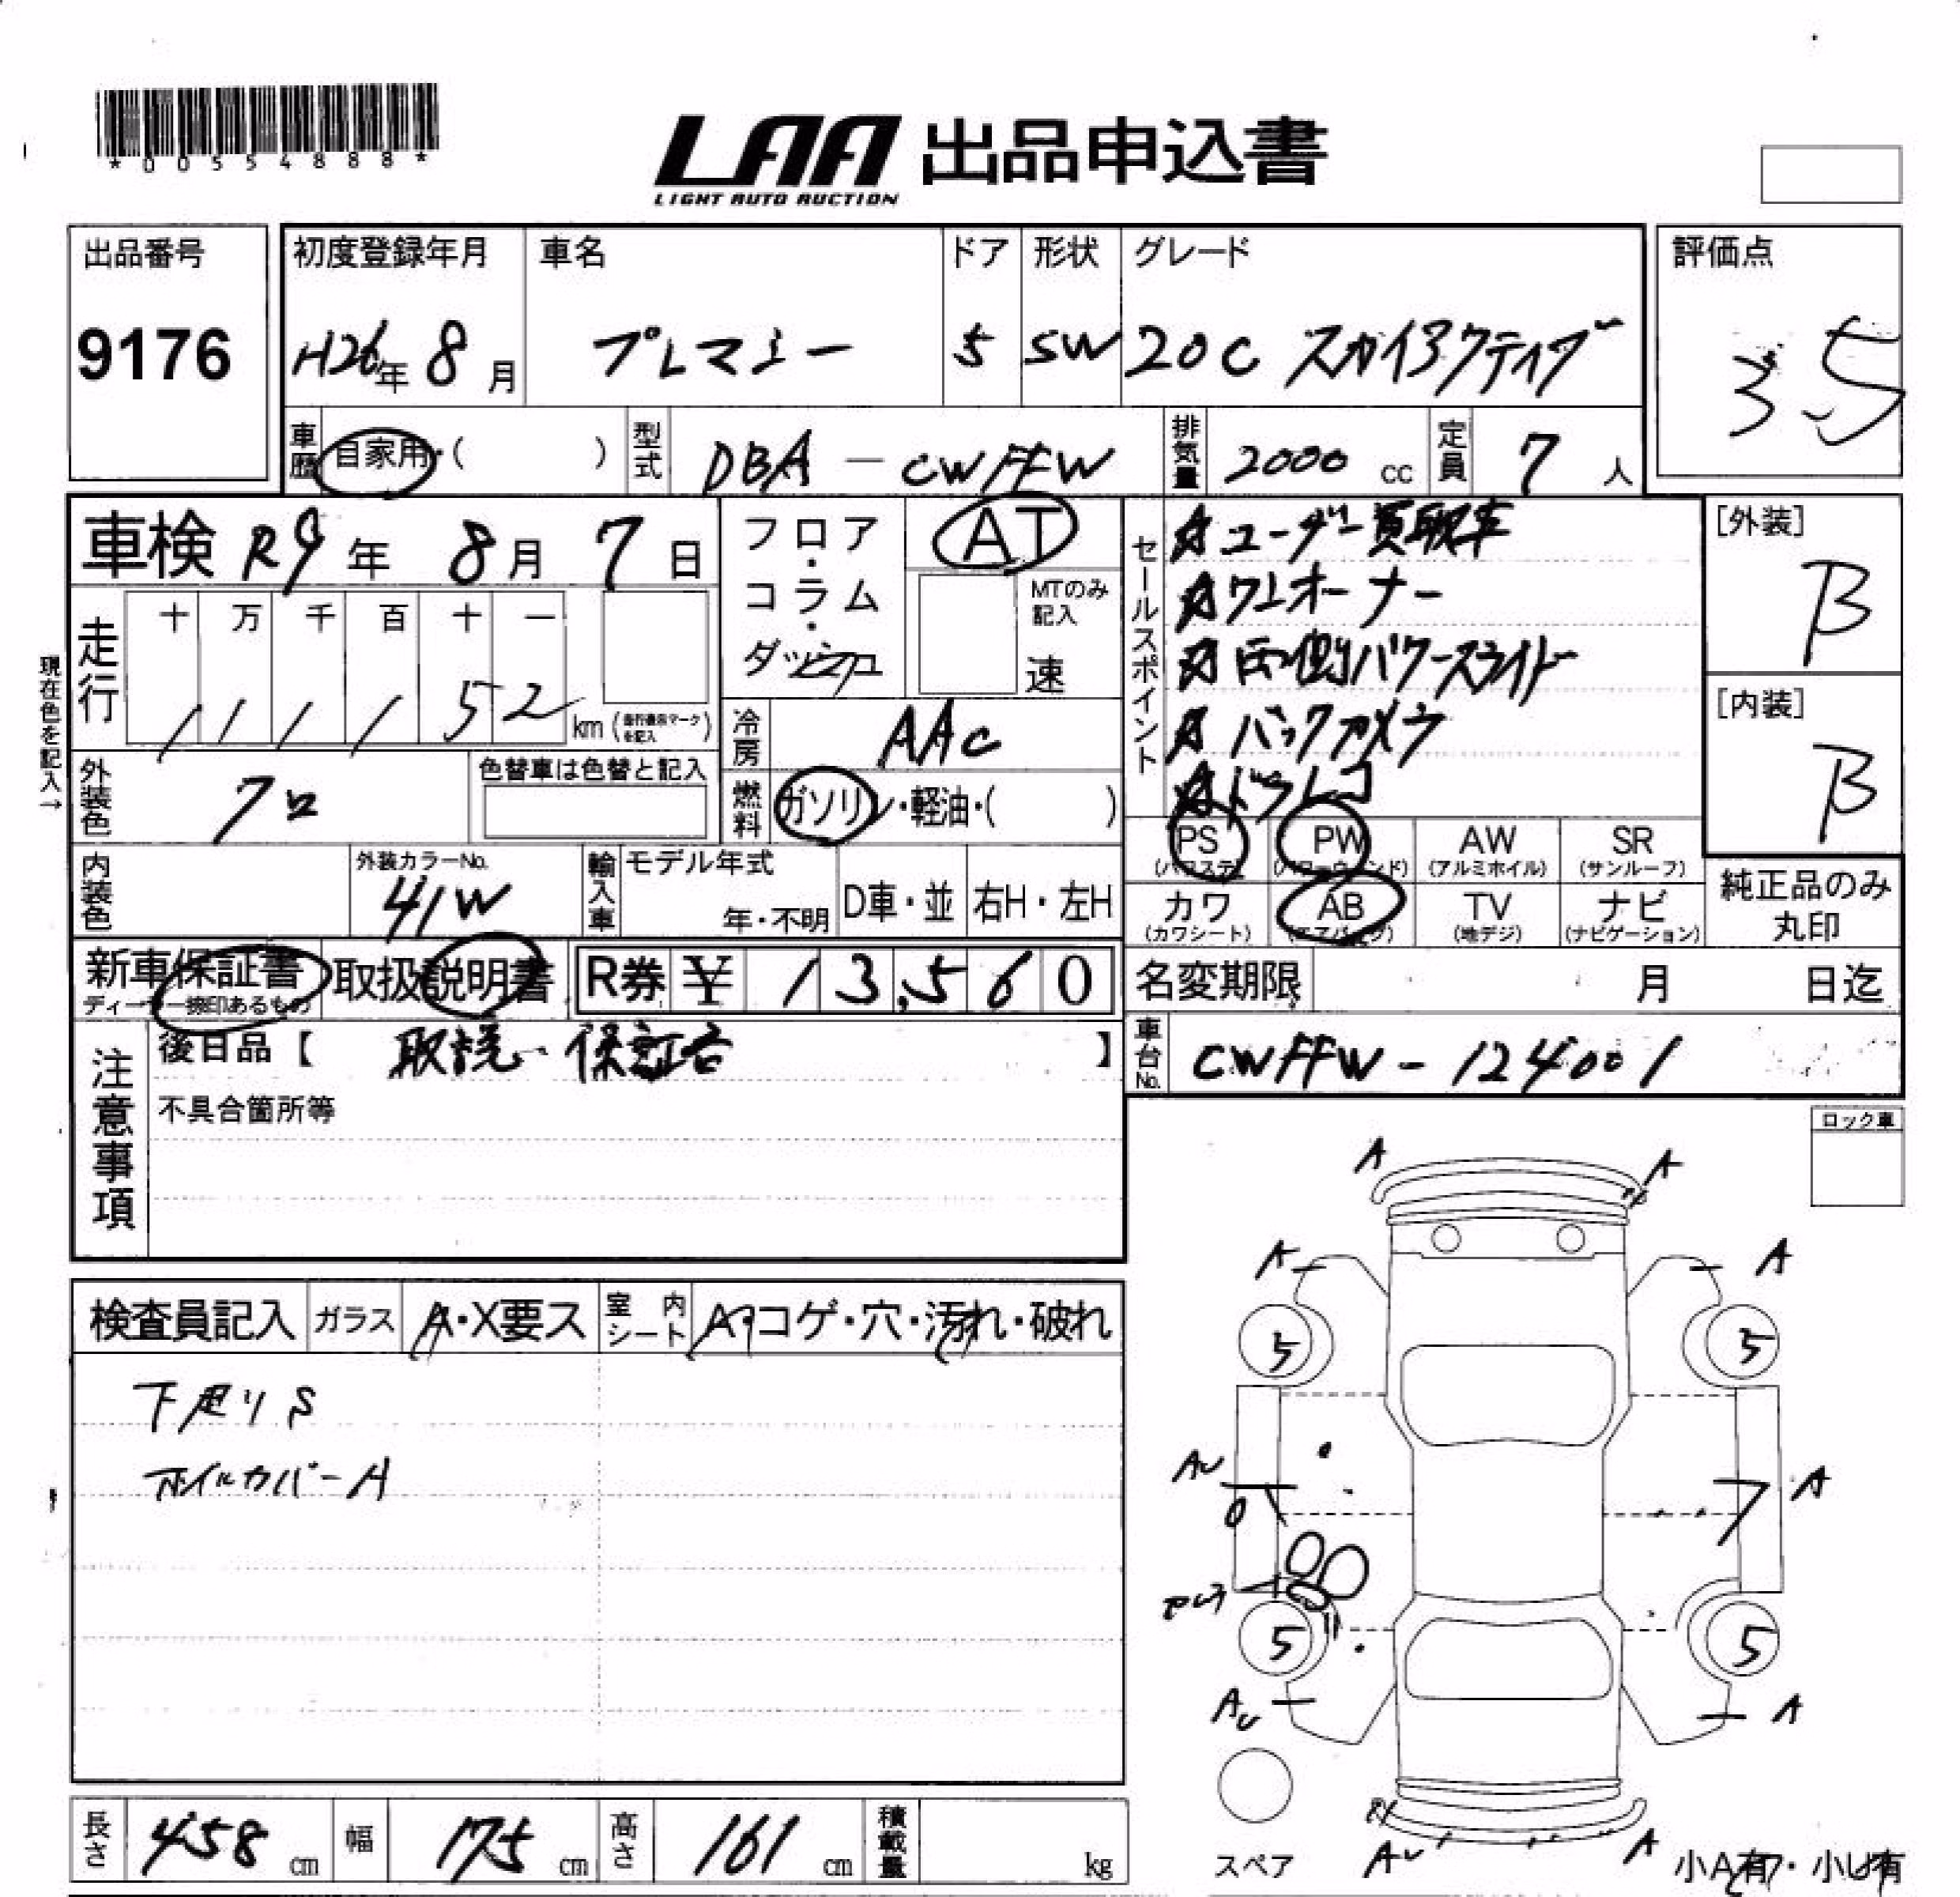 *00554888*
LAA 出品申込書
LIGHT AUTO AUCTION
出品番号 初度登録年月 車名 ドア 形状 グレード 評価点
9176 H26年 8月 プレマシー 5 SW 20C スカイアクティブ 3.5
車歴 自家用・( ) 型式 DBA－CWFFW 排気量 2000 cc 定員 7 人
車検 R9年 8月 7日
フロア・コラム・ダッシュ
AT
MTのみ記入
速
セールスポイント
ユーザー買取車
ワンオーナー
両側パワースライドドー
バックカメラ
ドラレコ
[外装]
B
[内装]
B
現在色を記入→
走行 十 万 千 百 十 一
111152 km (走行表示マークを記入)
冷房 AAC
外装色 クロ 色替車は色替と記入
燃料 ガソリン・軽油・( )
PS (パワステ) PW (パワーウィンド) AW (アルミホイル) SR (サンルーフ)
カワ (カワシート) AB (エアバッグ) TV (地デジ) ナビ (ナビゲーション)
純正品のみ丸印
内装色 外装カラーNo. 41W 輸入車 モデル年式 年・不明 D車・並 右H・左H
新車保証書 取扱説明書 R券 ¥ 13,560
ディーラー捺印あるもの
名変期限 月 日迄
車台No. CWFFW-124001
注意事項
後日品【 取説・保証書 】
不具合箇所等
ロック車
検査員記入 ガラス A・X要ス 室内シート A・コゲ・穴・汚れ・破れ
下廻り S
ホイルカバーA
A A
A A
5 5
AU A
5 5
AU A
AU A
スペア
小A有・小U有
長さ 458 cm 幅 175 cm 高さ 161 cm 積載量 kg